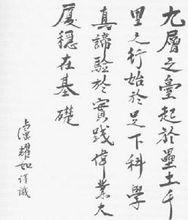 九層之臺起於壘土千
里之行始於足下科學
真諦驗於實踐偉業大
厦穩在基礎
盧耀如